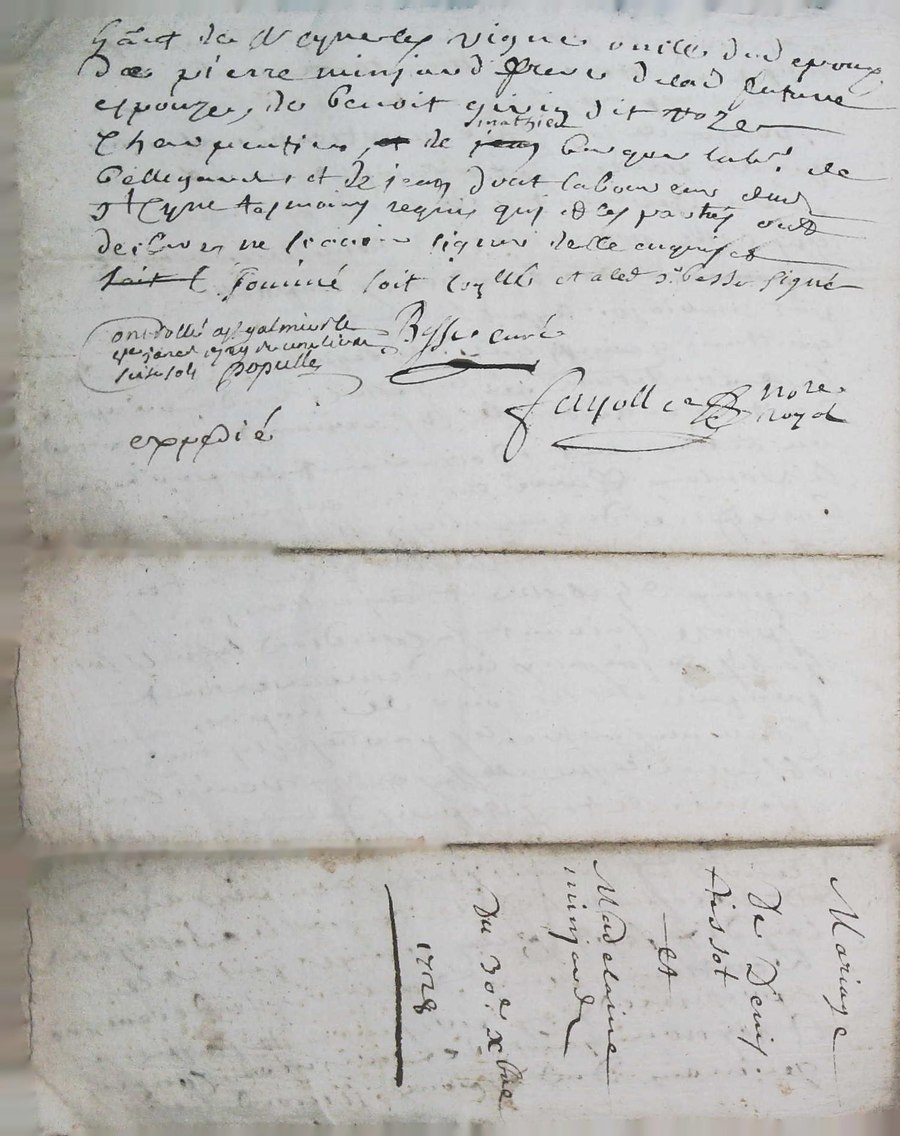 de St Cyr les vignes oncle dud epoux
de pierre minjard frere de lad future
espouze, de benoit givin dit noze
mathieu
Charpentier, et de jean berger lab.r de
bellegarde, et de jean duat laboureur dud
St Cyre tesmoins requis qui et les parties ont
declaré ne scavoir signer de ce enquis et
soit l somme soit et led sr besse signé
Besse curé
Controllé a St galmier le
4e janer 1729
seize sols Populle
expedié
fayolle
nore
royal
Mariage
De Denis
tissot
et
Madelaine
minjard
Du 30e xbre
1728